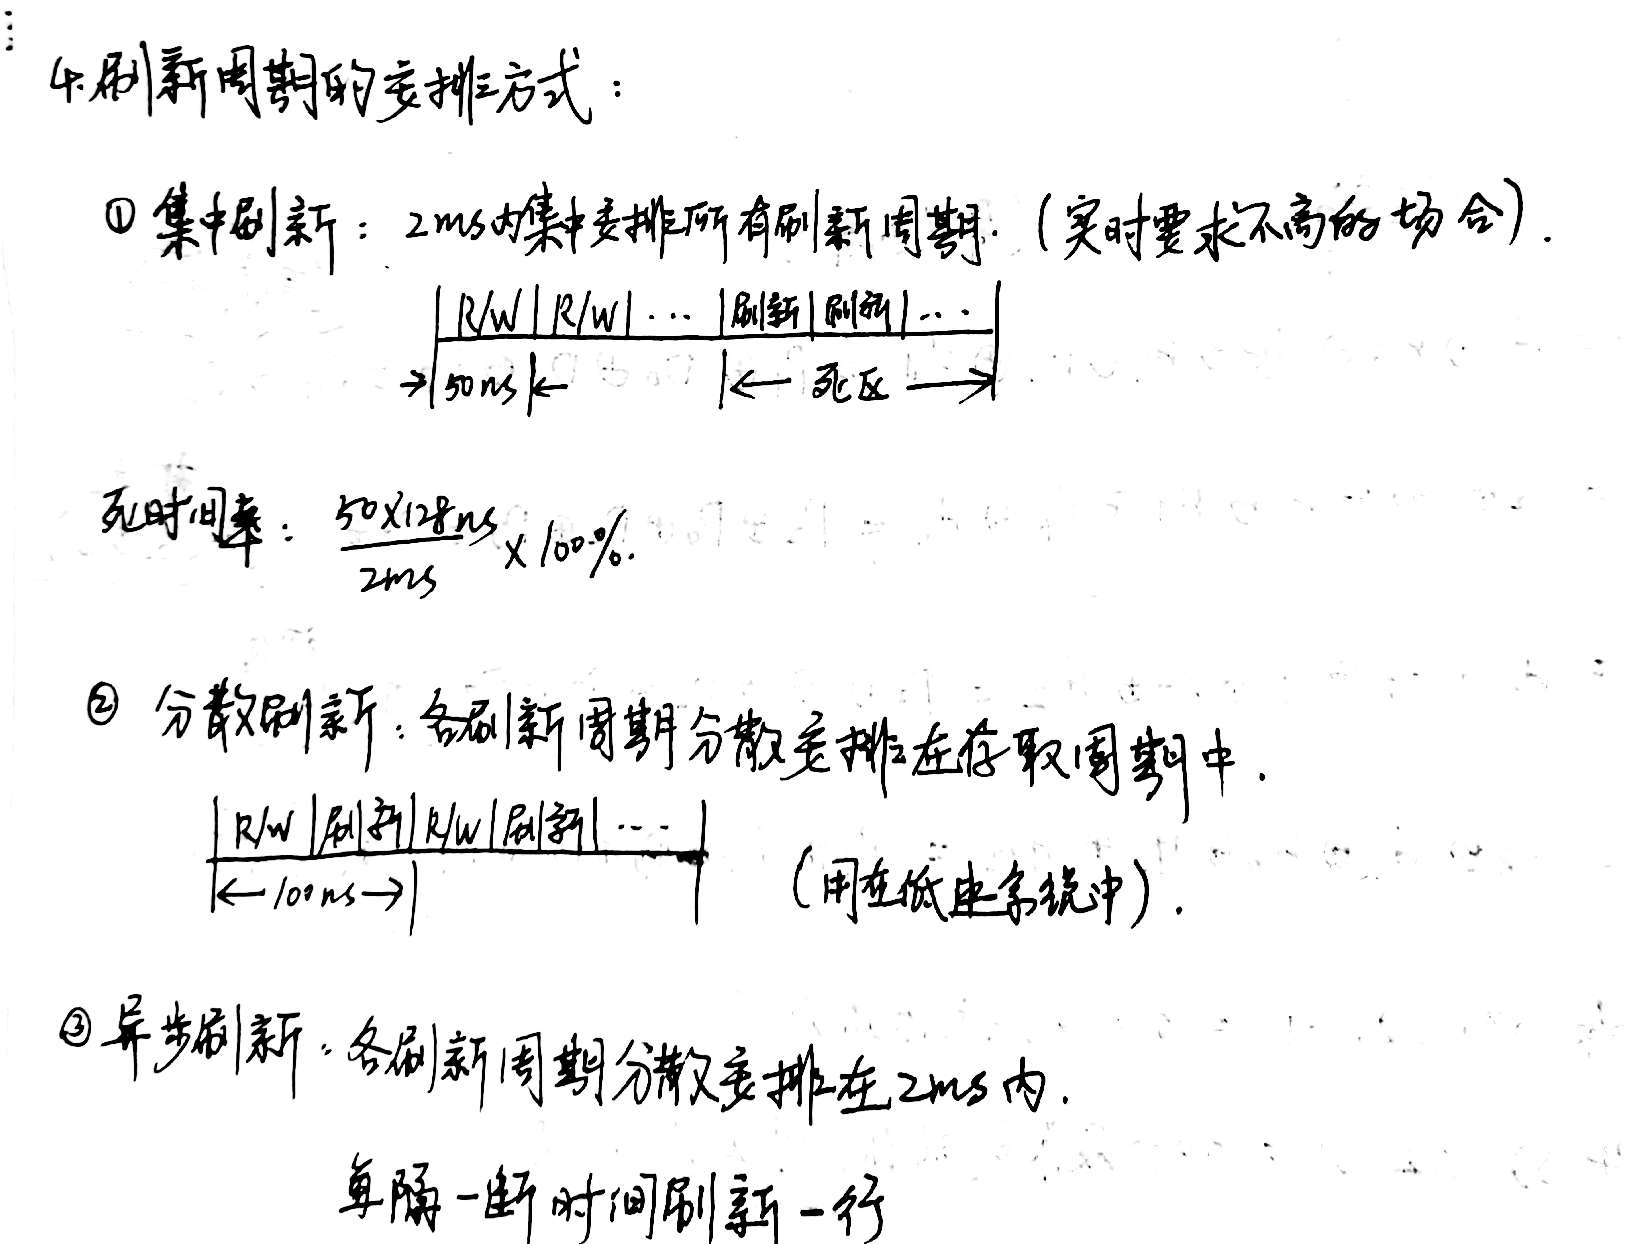 4.刷新周期的安排方式：
① 集中刷新：2ms内集中安排所有刷新周期.（实时要求不高的场合）.
R/W R/W ... 刷新 刷新 ...
50ns 死区
死时间率： 50×128ns / 2ms × 100%.
② 分散刷新：各刷新周期分散安排在存取周期中.
R/W 刷新 R/W 刷新 ...
100ns （用在低速系统中）.
③ 异步刷新：各刷新周期分散安排在2ms内.
每隔一断时间刷新一行